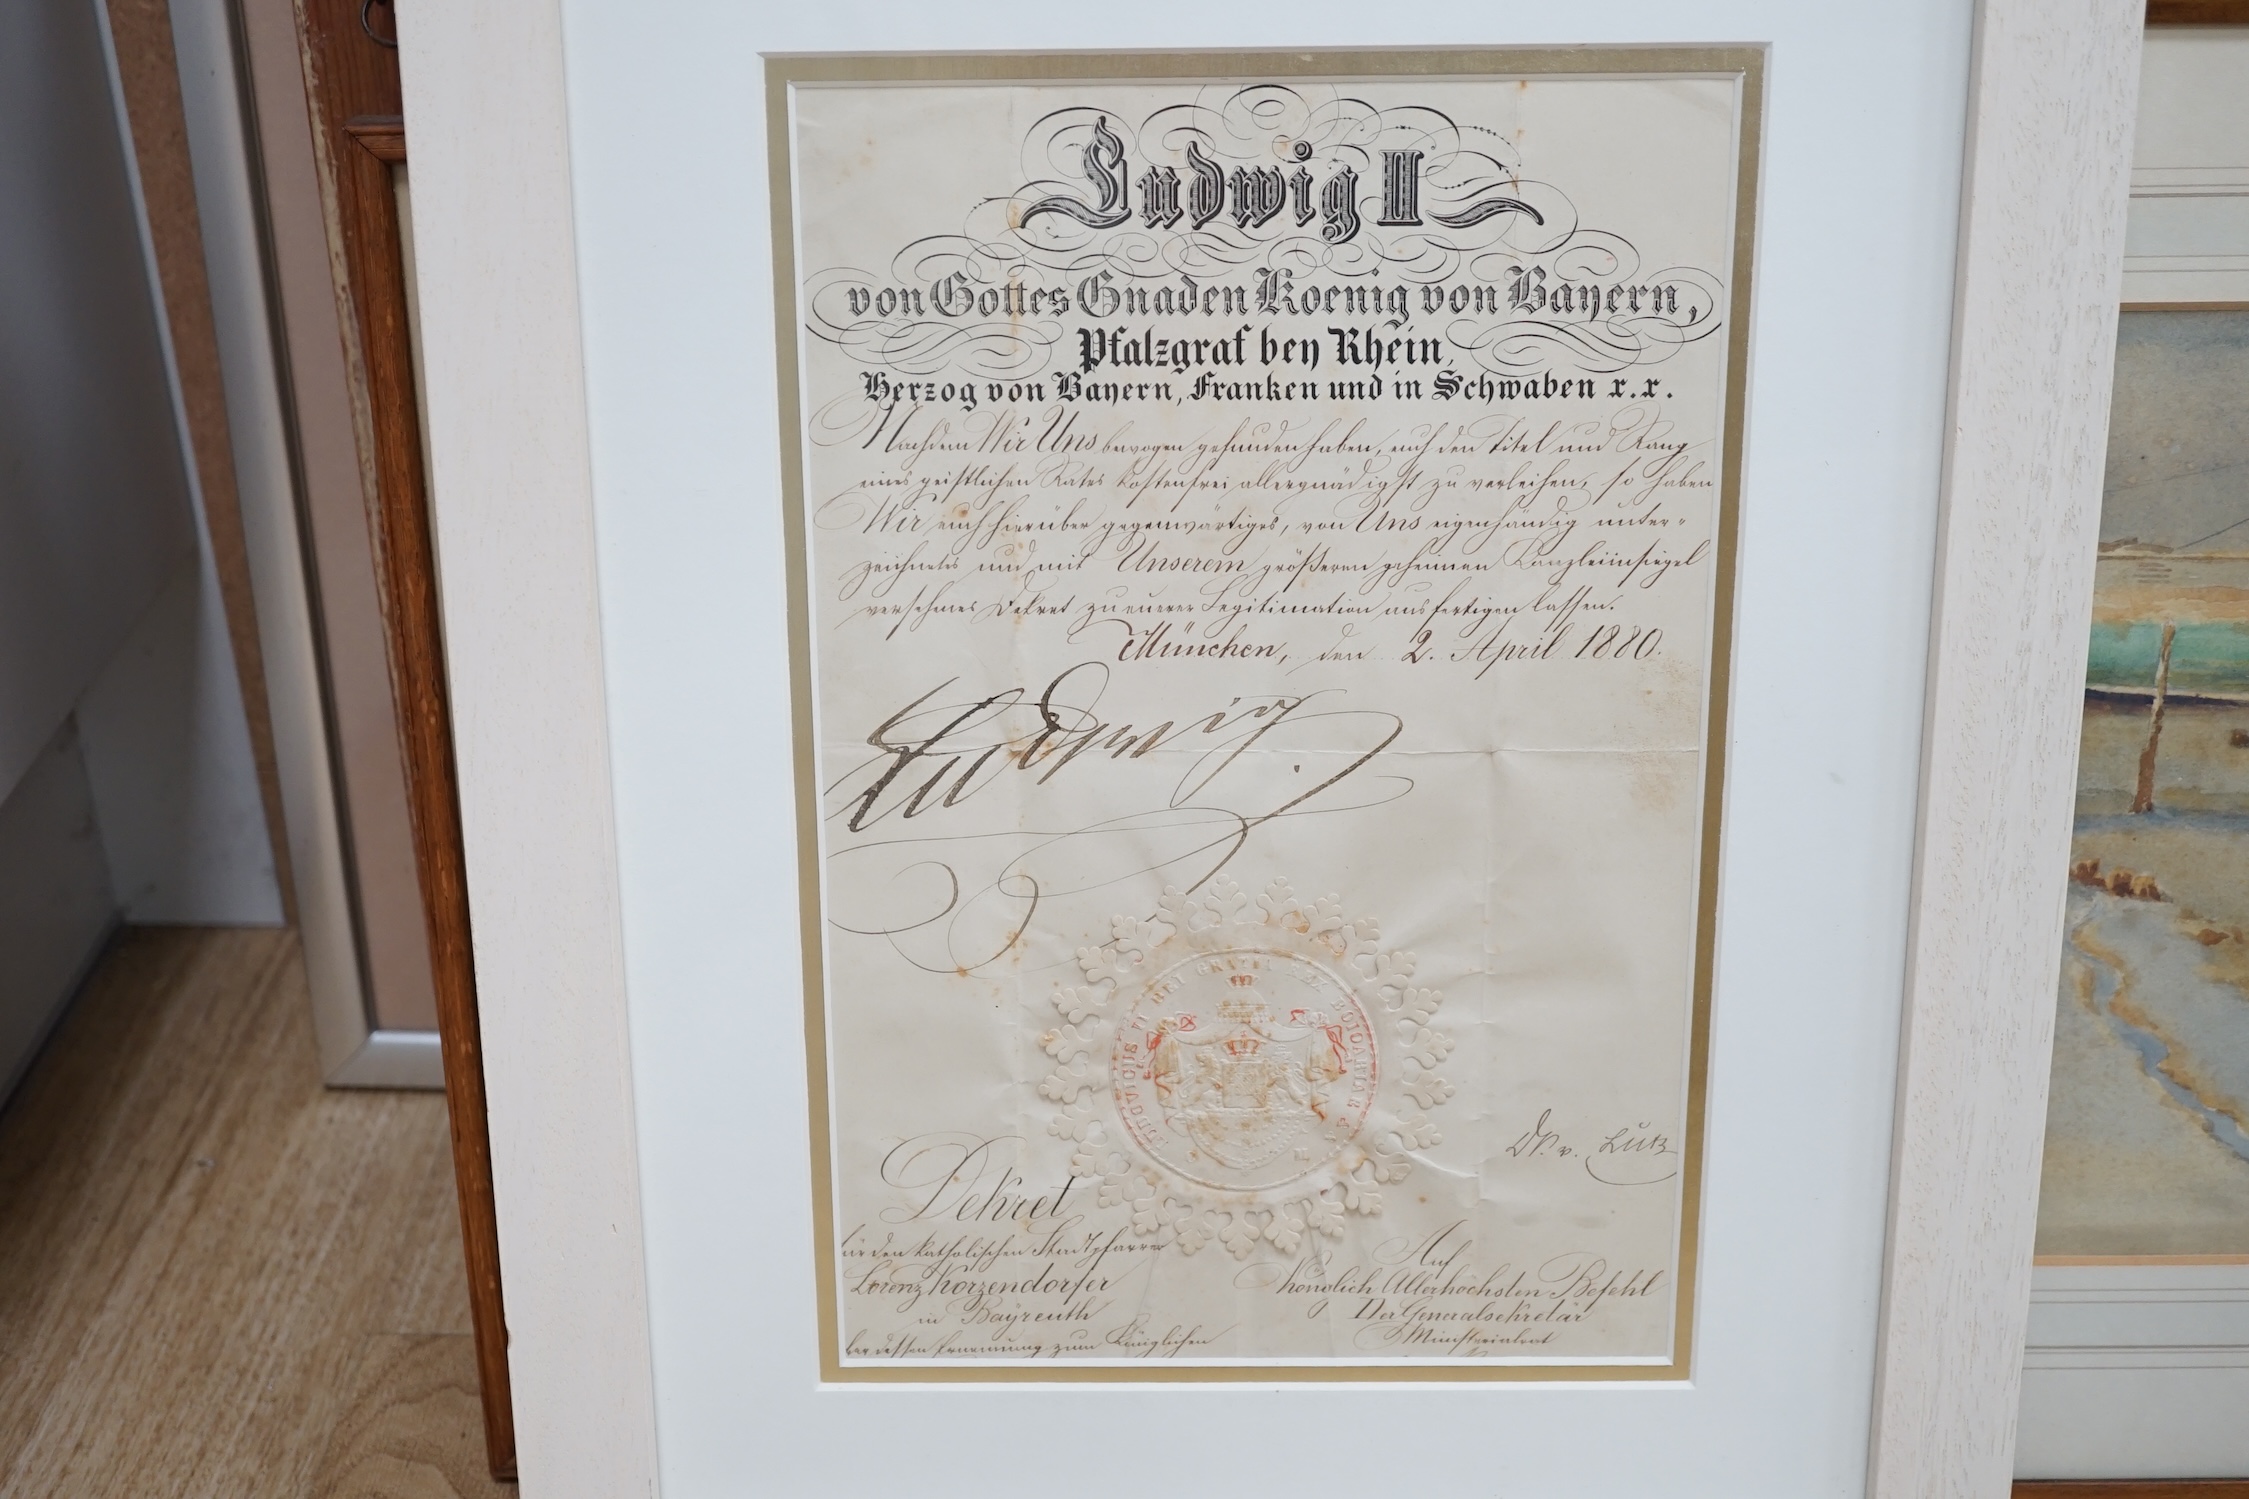 Ludwig II
von Gottes Gnaden Koenig von Bayern,
Pfalzgraf bey Rhein,
Herzog von Bayern, Franken und in Schwaben x. x.
Nachdem Wir Uns bewogen gefunden haben, euch den Titel und Rang
eines geistlichen Rates kostenfrei allergnädigst zu verleihen, so haben
Wir euch hierüber gegenwärtiges, von Uns eigenhändig unter-
zeichnetes und mit Unserem größeren geheimen Kanzleiinsiegel
versehenes Dekret zu euerer Legitimation ausfertigen lassen.
München, den 2. April 1880.
Ludwig.
LUDOVICUS II DEI GRATIA REX BOIOARIAE
Dr. v. Lutz
Dekret
für den katholischen Stadtpfarrer
Lorenz Korzendorfer
in Bayreuth
dessen Ernennung zum Königlichen
Auf
Königlich Allerhöchsten Befehl
Der Generalsekretär
Ministerialrat